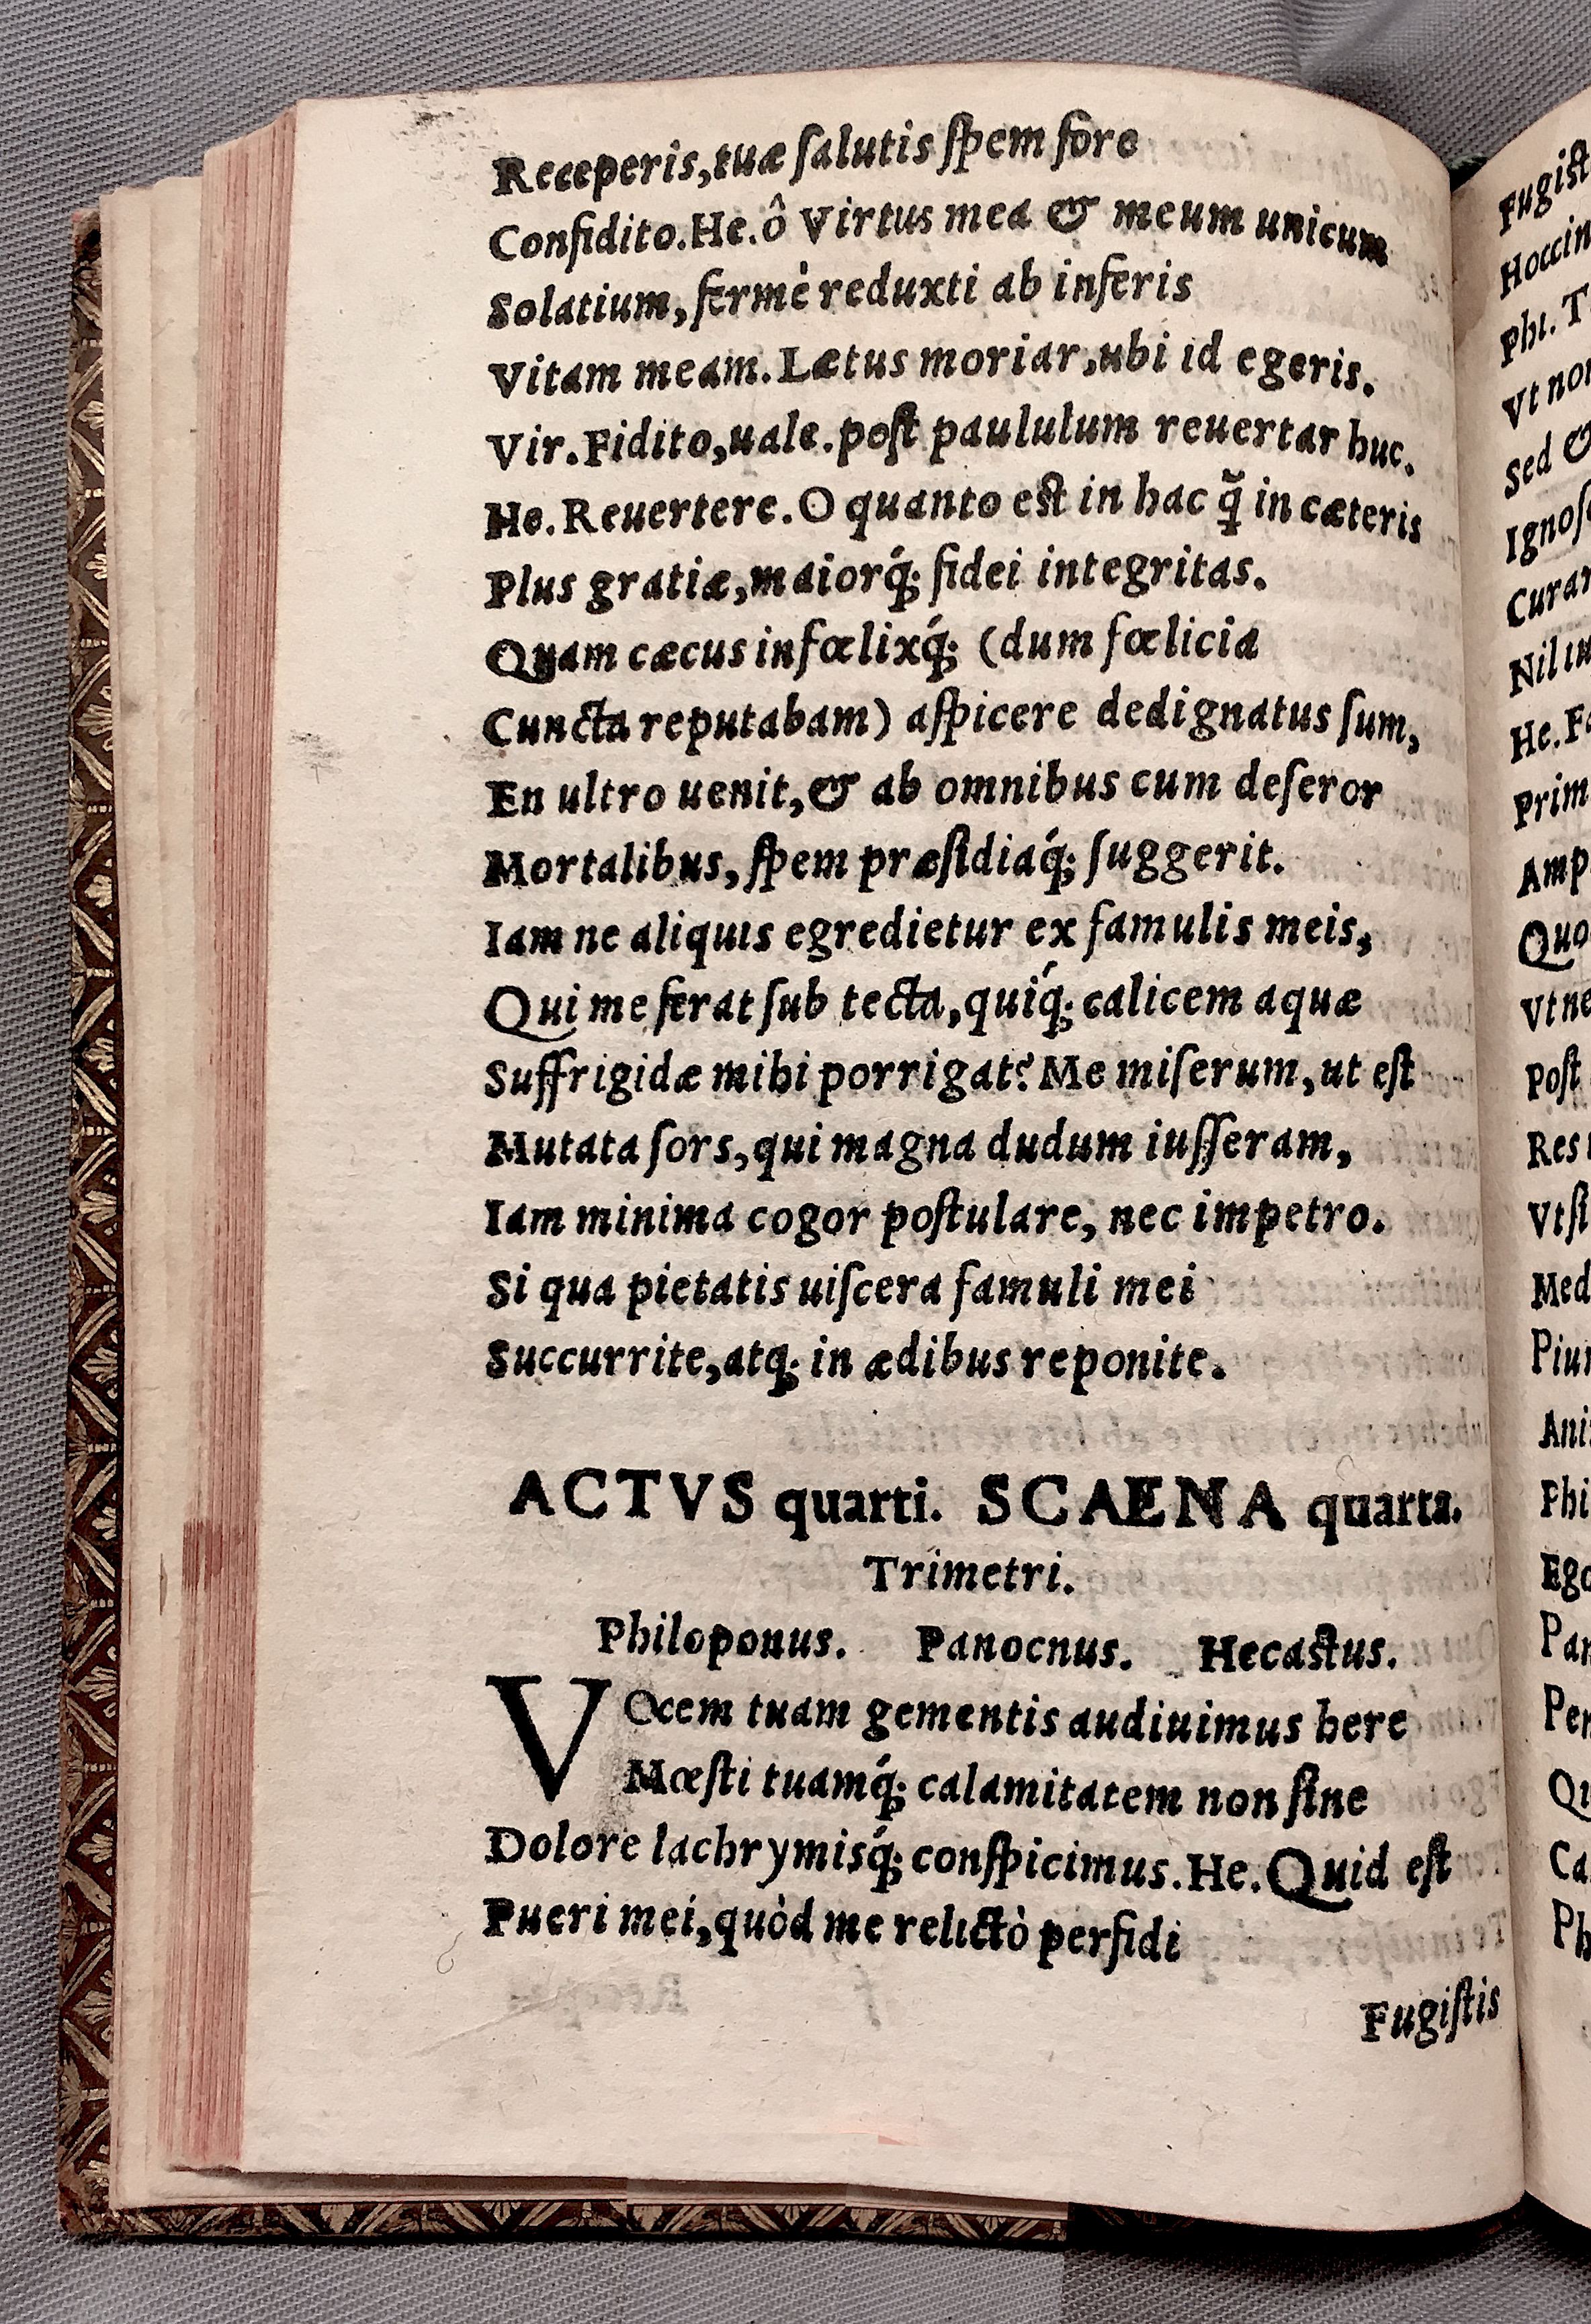 Receperis,tuæ ſalutis ſpem fore
Confidito.He.ô Virtus mea & meum unicum
Solatium,fermè reduxti ab inferis
Vitam meam.Lætus moriar,ubi id egeris.
Vir.Fidito,uale.poſt paululum reuertar huc.
He.Reuertere.O quanto est in hac q̃ in cæteris
Plus gratiæ,maiorq́; fidei integritas.
Quam cæcus infœlixq́; (dum fœlicia
Cuncta reputabam) aſpicere dedignatus ſum,
En ultro uenit,& ab omnibus cum deſeror
Mortalibus,ſpem præſidiaq́; ſuggerit.
Iam ne aliquis egredietur ex famulis meis,
Qui me ferat ſub tecta,quiq́; calicem aquæ
Suffrigidæ mihi porrigat? Me miſerum,ut eſt
Mutata ſors,qui magna dudum iuſſeram,
Iam minima cogor poſtulare, nec impetro.
Si qua pietatis uiſcera famuli mei
Succurrite,atq; in ædibus reponite.
ACTVS quarti. SCAENA quarta.
Trimetri.
Philoponus. Panocnus. Hecastus.
VOcem tuam gementis audiuimus here
Mœſti tuamq́; calamitatem non ſine
Dolore lachrymisq́; conſpicimus.He.Quid eſt
Pueri mei,quòd me relictò perfidi
Fugiſtis
Fugiſt
Hoccin
Phi. T
Vt non
Sed &
Ignoſ
Curar
Nil
He.Fa
Prim
Amp
Quo
Vt ne
Poſt
Res
Vt ſi
Med
Piu
Ani
Phi
Ego
Pan
Per
Qu
Ca
Ph